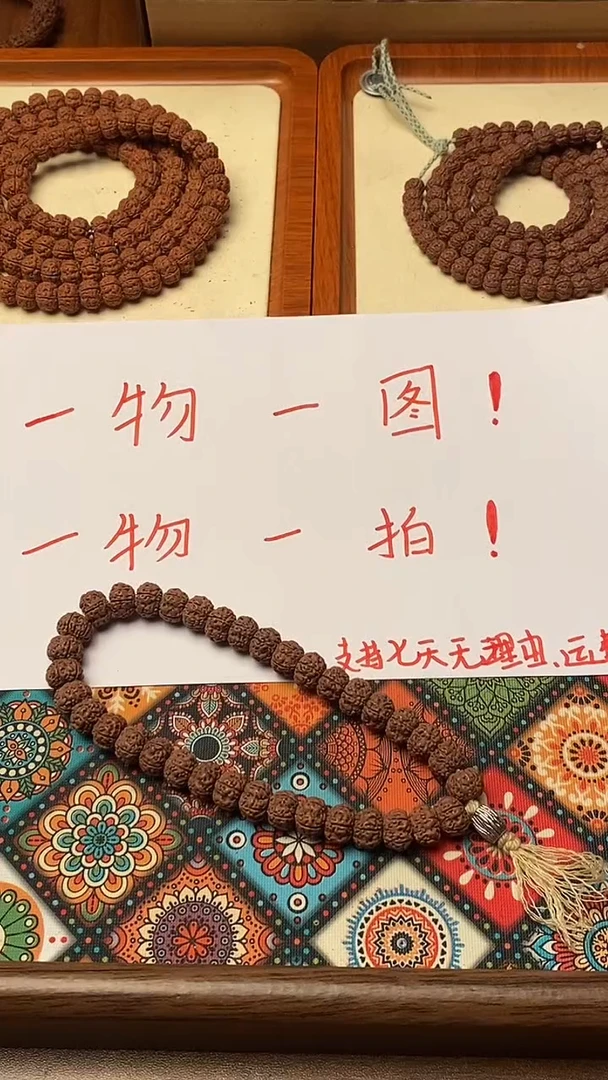 一物一图！
一物一拍！
支持七天无理由、运